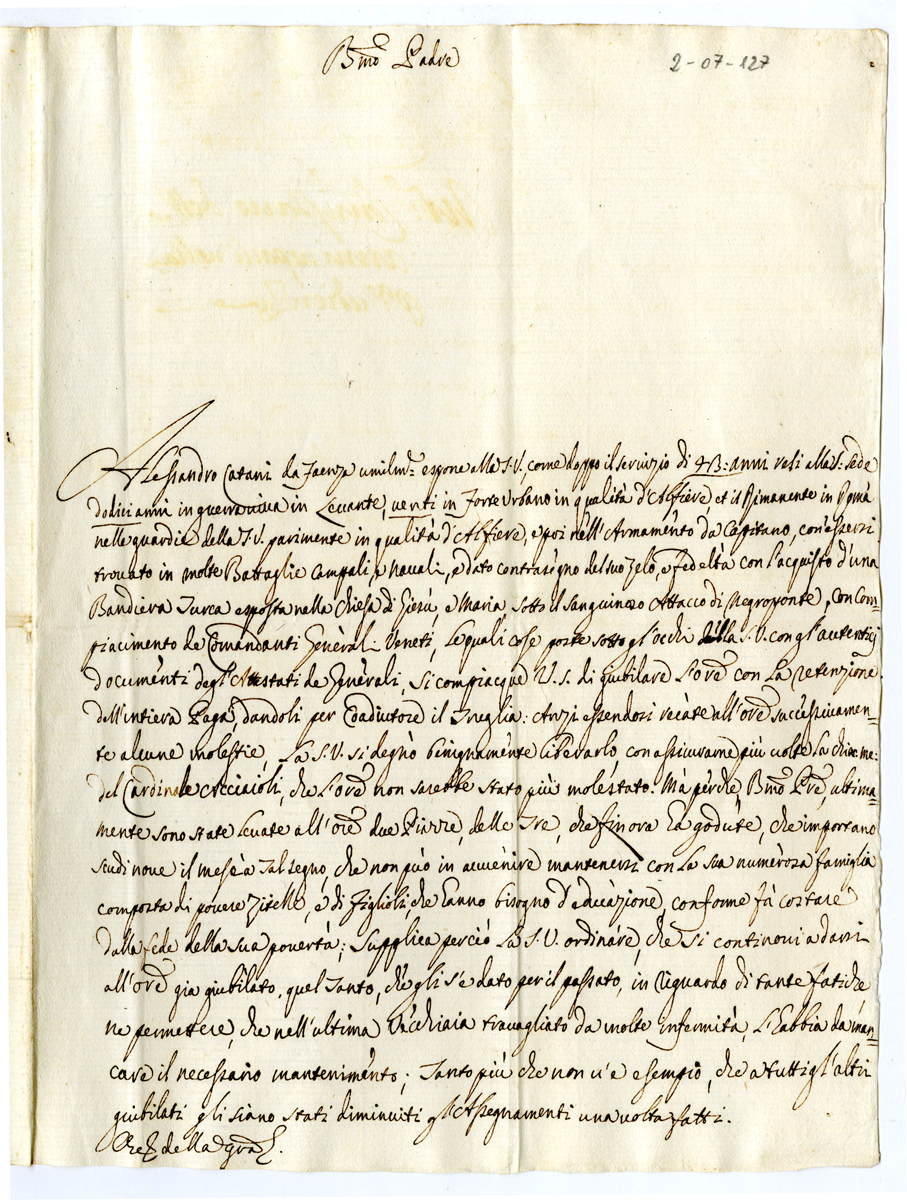 Bmo Padre
2-07-127
Alessandro Catani da Faenza umilmte espone alla S.V. come doppo il servizio di 43: anni resi alla S. Sede
dodici anni in guerra viva in Levante, venti in Forte Urbano in qualità d'Alfiere, et il Rimanente in Roma
nelle guardie della S.V. parimente in qualità d'Alfiere, e poi nell'Armamento da Capitano, con essersi
trovato in molte Battaglie Campali, e navali, e dato contrasegno del suo zelo, e fedeltà con l'acquisto d'una
Bandiera Turca esposta nella Chiesa di Giesù, e Maria sotto il sanguinoso Attacco di Negroponte, con Com=
piacimento de Comandanti Generali Veneti, le quali cose poste sotto gl'occhi della S.V. con gl'autentici
documenti degl'Attestati de Generali, si compiacque V.S. di giubilare l'Ore con la retenzione
dell'intiera Paga, dandoli per Coadiutore il Treglia: Anzi essendosi recate all'Ore successivamen=
te alcune molestie, La S.V. si degnò benignamente liberarlo, con assicurarne più volte la chia: me:
del Cardinale Acciaioli, che l'Ore non sarebbe stato più molestato. Mà perche, Bmo Pre, ultima=
mente sono state levate all'Ore due Piazze, delle Tre, che finora hà godute, che importano
scudi nove il mese à tal segno, che non può in avvenire mantenersi con la sua numerosa famiglia
composta di povere Zitelle, e di figlioli che hanno bisogno d'educazione, conforme fà costare
dalla fede della sua povertà; Supplica perciò la S.V. ordinare, che si continovi a darsi
all'Ore già giubilato, quel Tanto, che gli s'è dato per il passato, in riguardo di tante fatiche
ne permettere, che nell'ultima Vecchiaia travagliato da molte Infermità, l'habbia da man=
care il necessario mantenimento; Tanto più che non v'è esempio, che a tutti gl'altri
giubilati gli siano stati diminuiti gl'Assegnamenti una volta fatti.
Che della gra.